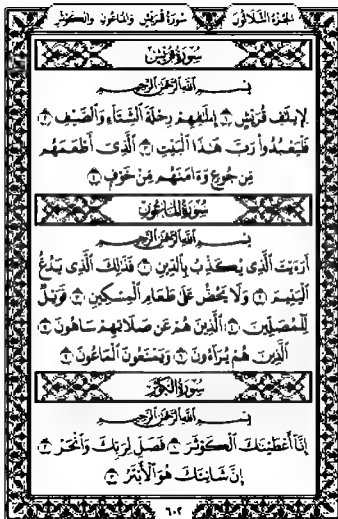 الجزء الثلاثون سورة قريش والماعون والكوثر
سورة قريش
بسم الله الرحمن الرحيم
لإيلاف قريش ١ إيلافهم رحلة الشتاء والصيف ٢
فليعبدوا رب هذا البيت ٣ الذي أطعمهم
من جوع وءامنهم من خوف ٤
سورة الماعون
بسم الله الرحمن الرحيم
أرءيت الذي يكذب بالدين ١ فذلك الذي يدع
اليتيم ٢ ولا يحض على طعام المسكين ٣ فويل
للمصلين ٤ الذين هم عن صلاتهم ساهون ٥
الذين هم يراءون ٦ ويمنعون الماعون ٧
سورة الكوثر
بسم الله الرحمن الرحيم
إنا أعطيناك الكوثر ١ فصل لربك وانحر ٢
إن شانئك هو الأبتر ٣
٦٠٢